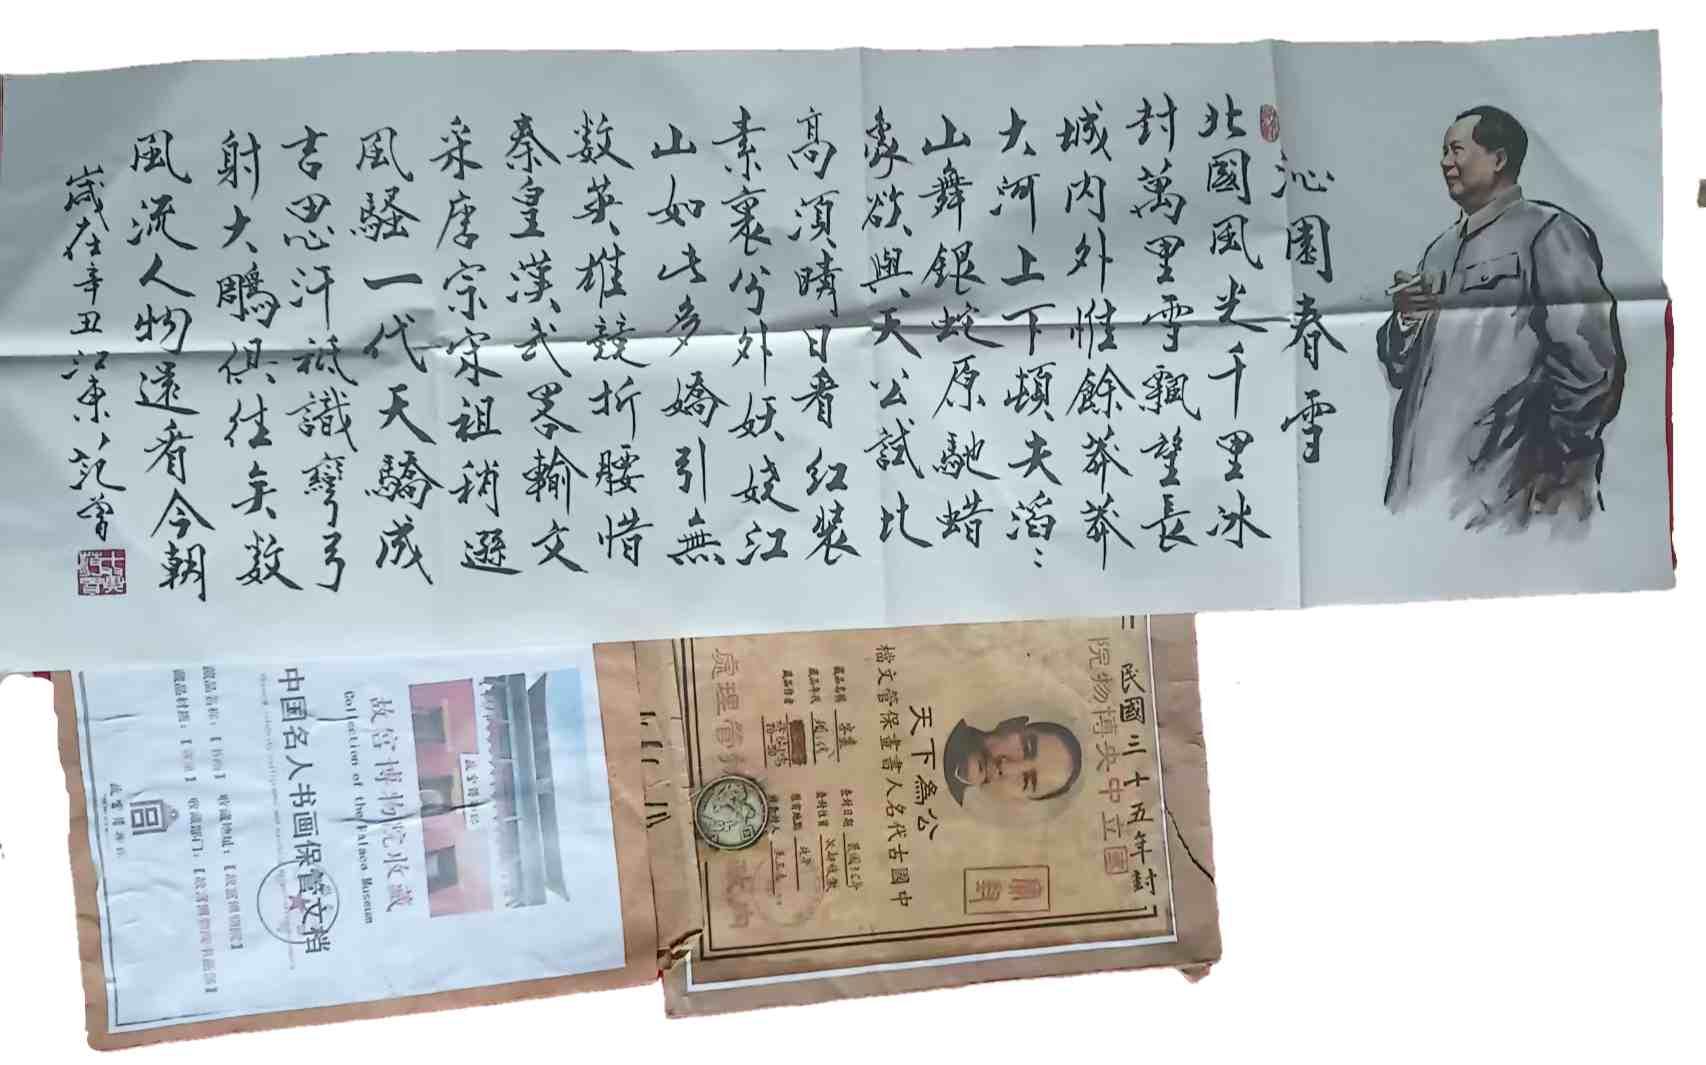 沁園春雪
北國風光千里冰
封萬里雪飄望長
城内外惟餘莽莽
大河上下頓失滔〻
山舞銀蛇原馳蜡
象欲與天公試比
高須晴日看红装
素裹分外妖娆江
山如此多嬌引無
数英雄競折腰惜
秦皇漢武畧輸文
采唐宗宋祖稍遜
風騷一代天驕成
吉思汗祗識彎弓
射大鵰俱往矣数
風流人物還看今朝
歲在辛丑江東范曾
民國三十五年封
國立中央博物院
天下為公
中國古代名人書畫保管文檔
藏品名稱
藏品年代
藏品作者
查封日期
處理管
故宫博物院收藏
Collection of the Palace Museum
中国名人书画保管文档
藏品名称：【书画】 收藏地址：【故宫博物院】
藏品材质： 收藏部门：【故宫博物院书画部】
故宫博物院